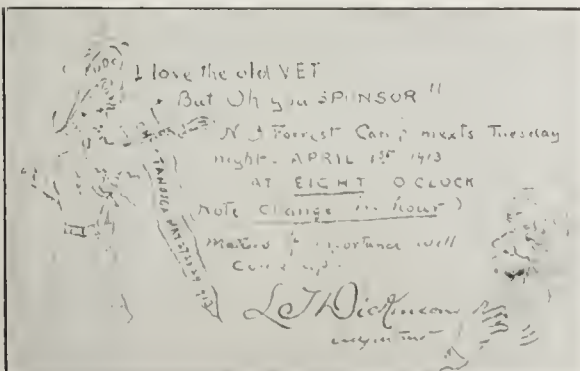 I love the old VET
But Oh you SPONSOR"
N B Forrest Camp meets Tuesday
night. APRIL 1st 1913
AT EIGHT O CLOCK
Note change in hour)
Matters of importance will
Come up.
L T Dickinson